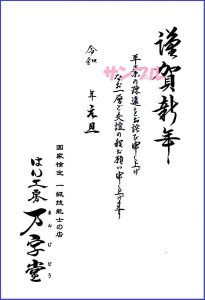 謹賀新年
サンプル
平素の疎遠をお詫び申し上げ
なお一層ご交誼の程お願い申し上げます
令和　年 元旦
国家検定 一級技能士の店
はんこ家 万字堂
まんじどう